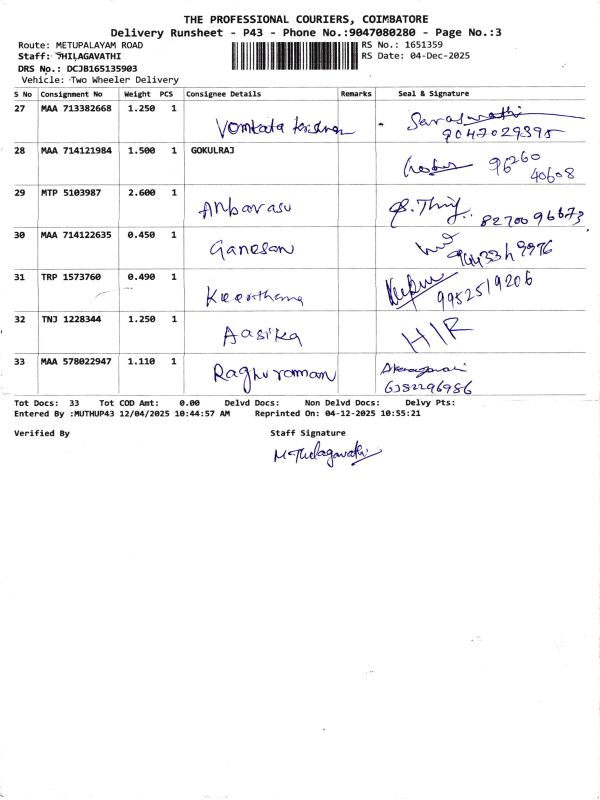 THE PROFESSIONAL COURIERS, COIMBATORE
Delivery Runsheet - P43 - Phone No.:9047080280 - Page No.:3
Route: METUPALAYAM ROAD RS No.: 1651359
Staff: THILAGAVATHI RS Date: 04-Dec-2025
DRS No.: DCJB165135903
Vehicle: Two Wheeler Delivery
S No Consignment No Weight PCS Consignee Details Remarks Seal & Signature
27 MAA 713382668 1.250 1
28 MAA 714121984 1.500 1 GOKULRAJ
29 MTP 5103987 2.600 1 Anbarasu
30 MAA 714122635 0.450 1 Ganesan
31 TRP 1573760 0.490 1 Keerthana 9952519206
32 TNJ 1228344 1.250 1 Aasika HIR
33 MAA 578022947 1.110 1 Raghuraman 6382296986
Tot Docs: 33 Tot COD Amt: 0.00 Delvd Docs: Non Delvd Docs: Delvy Pts:
Entered By :MUTHUP43 12/04/2025 10:44:57 AM Reprinted On: 04-12-2025 10:55:21
Verified By Staff Signature
M Thilagavathi